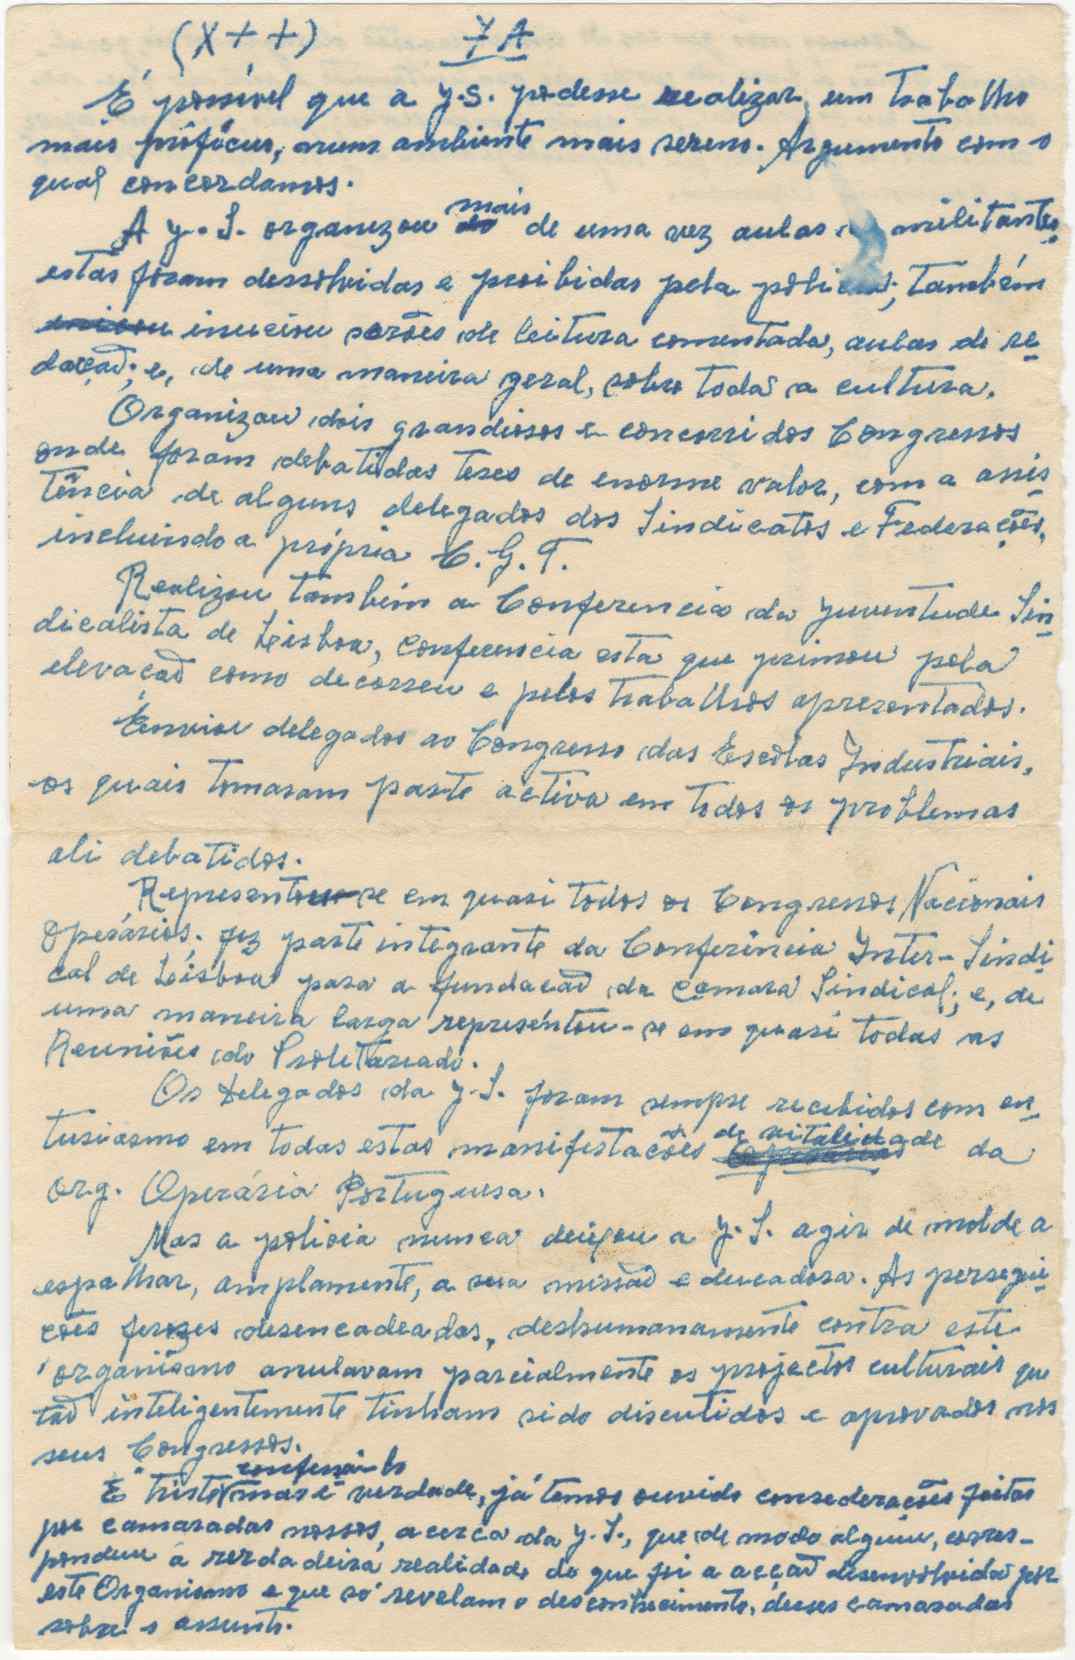 (X++) 7 A
É possível que a y.S. podesse realizar um trabalho
mais profícuo, num ambiente mais sereno. Argumento com o
qual concordamos.
A y.S. organizou mais de uma vez aulas militantes
estas foram dessolvidas e proibidas pela policia; também
inuciou serões de leitura comentada, aulas de re-
dação; e, de uma maneira geral, sobre toda a cultura.
Organizou dois grandiosos e concorridos Congressos
onde foram debatidas teses de enorme valor, com a assis-
tência de alguns delegados dos Sindicatos e Federações,
incluindo a própria C.G.T.
Realizou também a Conferencia da Juventude Sin-
dicalista de Lisboa, conferencia esta que primou pela
elevação como decorreu e pelos trabalhos apresentados.
Enviou delegados ao Congresso das Escolas Industriais,
os quais tomaram parte activa em todos os problemas
ali debatidos.
Representou-se em quasi todos os Congressos Nacionais
Operários. fez parte integrante da Conferência Inter-Sindi-
cal de Lisboa para a fundação da Camara Sindical; e, de
uma maneira larga representou-se em quasi todas as
Reuniões do Proletariado.
Os Delegados da y.S. foram sempre recebidos com en-
tusiasmo em todas estas manifestações de vitalidade da
org. Operária Portuguesa.
Mas a policia nunca deixou a y.S. agir de molde a
espalhar, amplamente, a sua missão educadora. As persegui-
cões ferozes desencadeadas, deshumanamente contra este
organismo anulavam parcialmente os projectos culturais que
tão inteligentemente tinham sido discutidos e aprovados nos
seus Congressos.
É triste confessá-lo mas é verdade, já temos ouvido considerações feitas
por camaradas nossos, acerca da y.S., que de modo algum, corres-
pondem á verdadeira realidade do que foi a acção disenvolvida por
este Organismo e que só revelam o desconhecimento, desses camaradas
sobre o assunto.